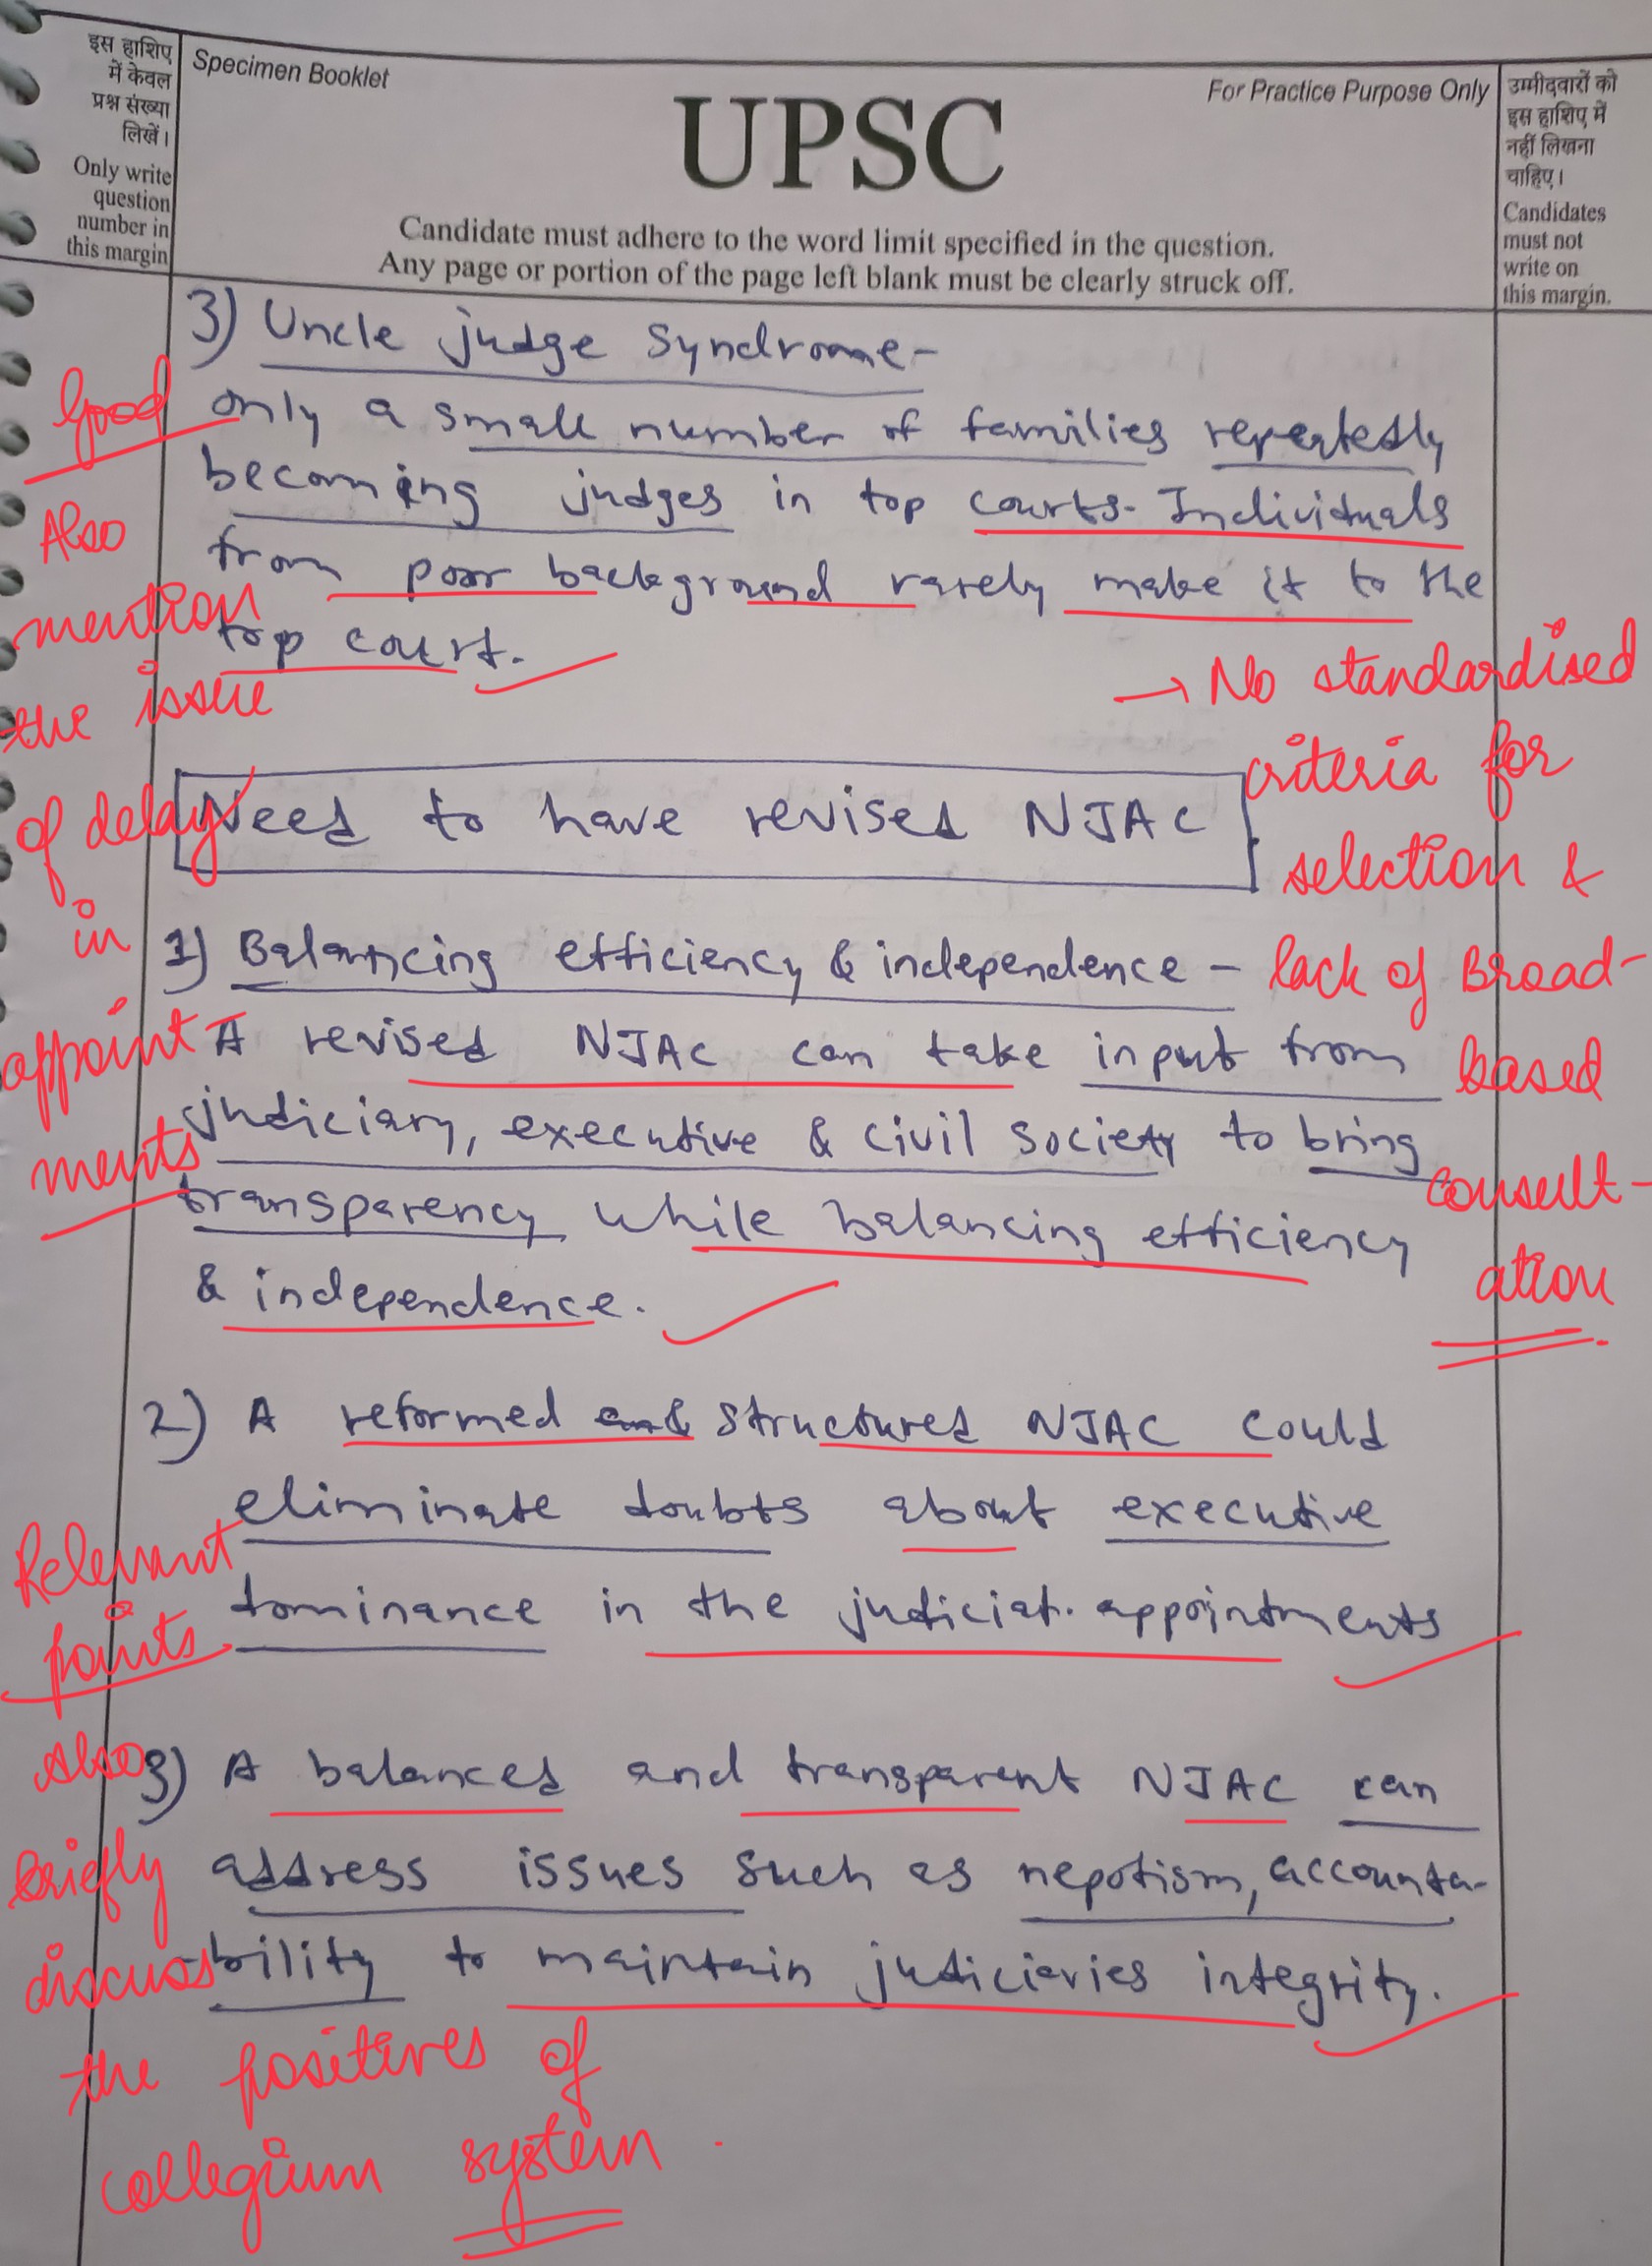 इस हाशिए
में केवल
प्रश्न संख्या
लिखें।
Only write
question
number in
this margin
Specimen Booklet
For Practice Purpose Only
UPSC
Candidate must adhere to the word limit specified in the question.
Any page or portion of the page left blank must be clearly struck off.
उम्मीदवारों को
इस हाशिए में
नहीं लिखना
चाहिए।
Candidates
must not
write on
this margin.
3) Uncle judge Syndrome-
only a small number of families repeatedly
becoming judges in top courts. Individuals
from poor background rarely make it to the
top court.
Good
Also
mention
the issue
of delay
in
appoint
ments
→ No standardised
criteria for
selection &
lack of Broad-
based
consult-
ation
Need to have revised NJAC
1) Balancing efficiency & independence -
A revised NJAC can take input from
judiciary, executive & civil society to bring
transparency while balancing efficiency
& independence.
2) A reformed and structured NJAC could
eliminate doubts about executive
dominance in the judicial appointments
Relevant
points
3) A balanced and transparent NJAC can
address issues such as nepotism, accounta-
-bility to maintain judiciaries integrity.
Also
briefly
discuss
the positives of
collegium system.